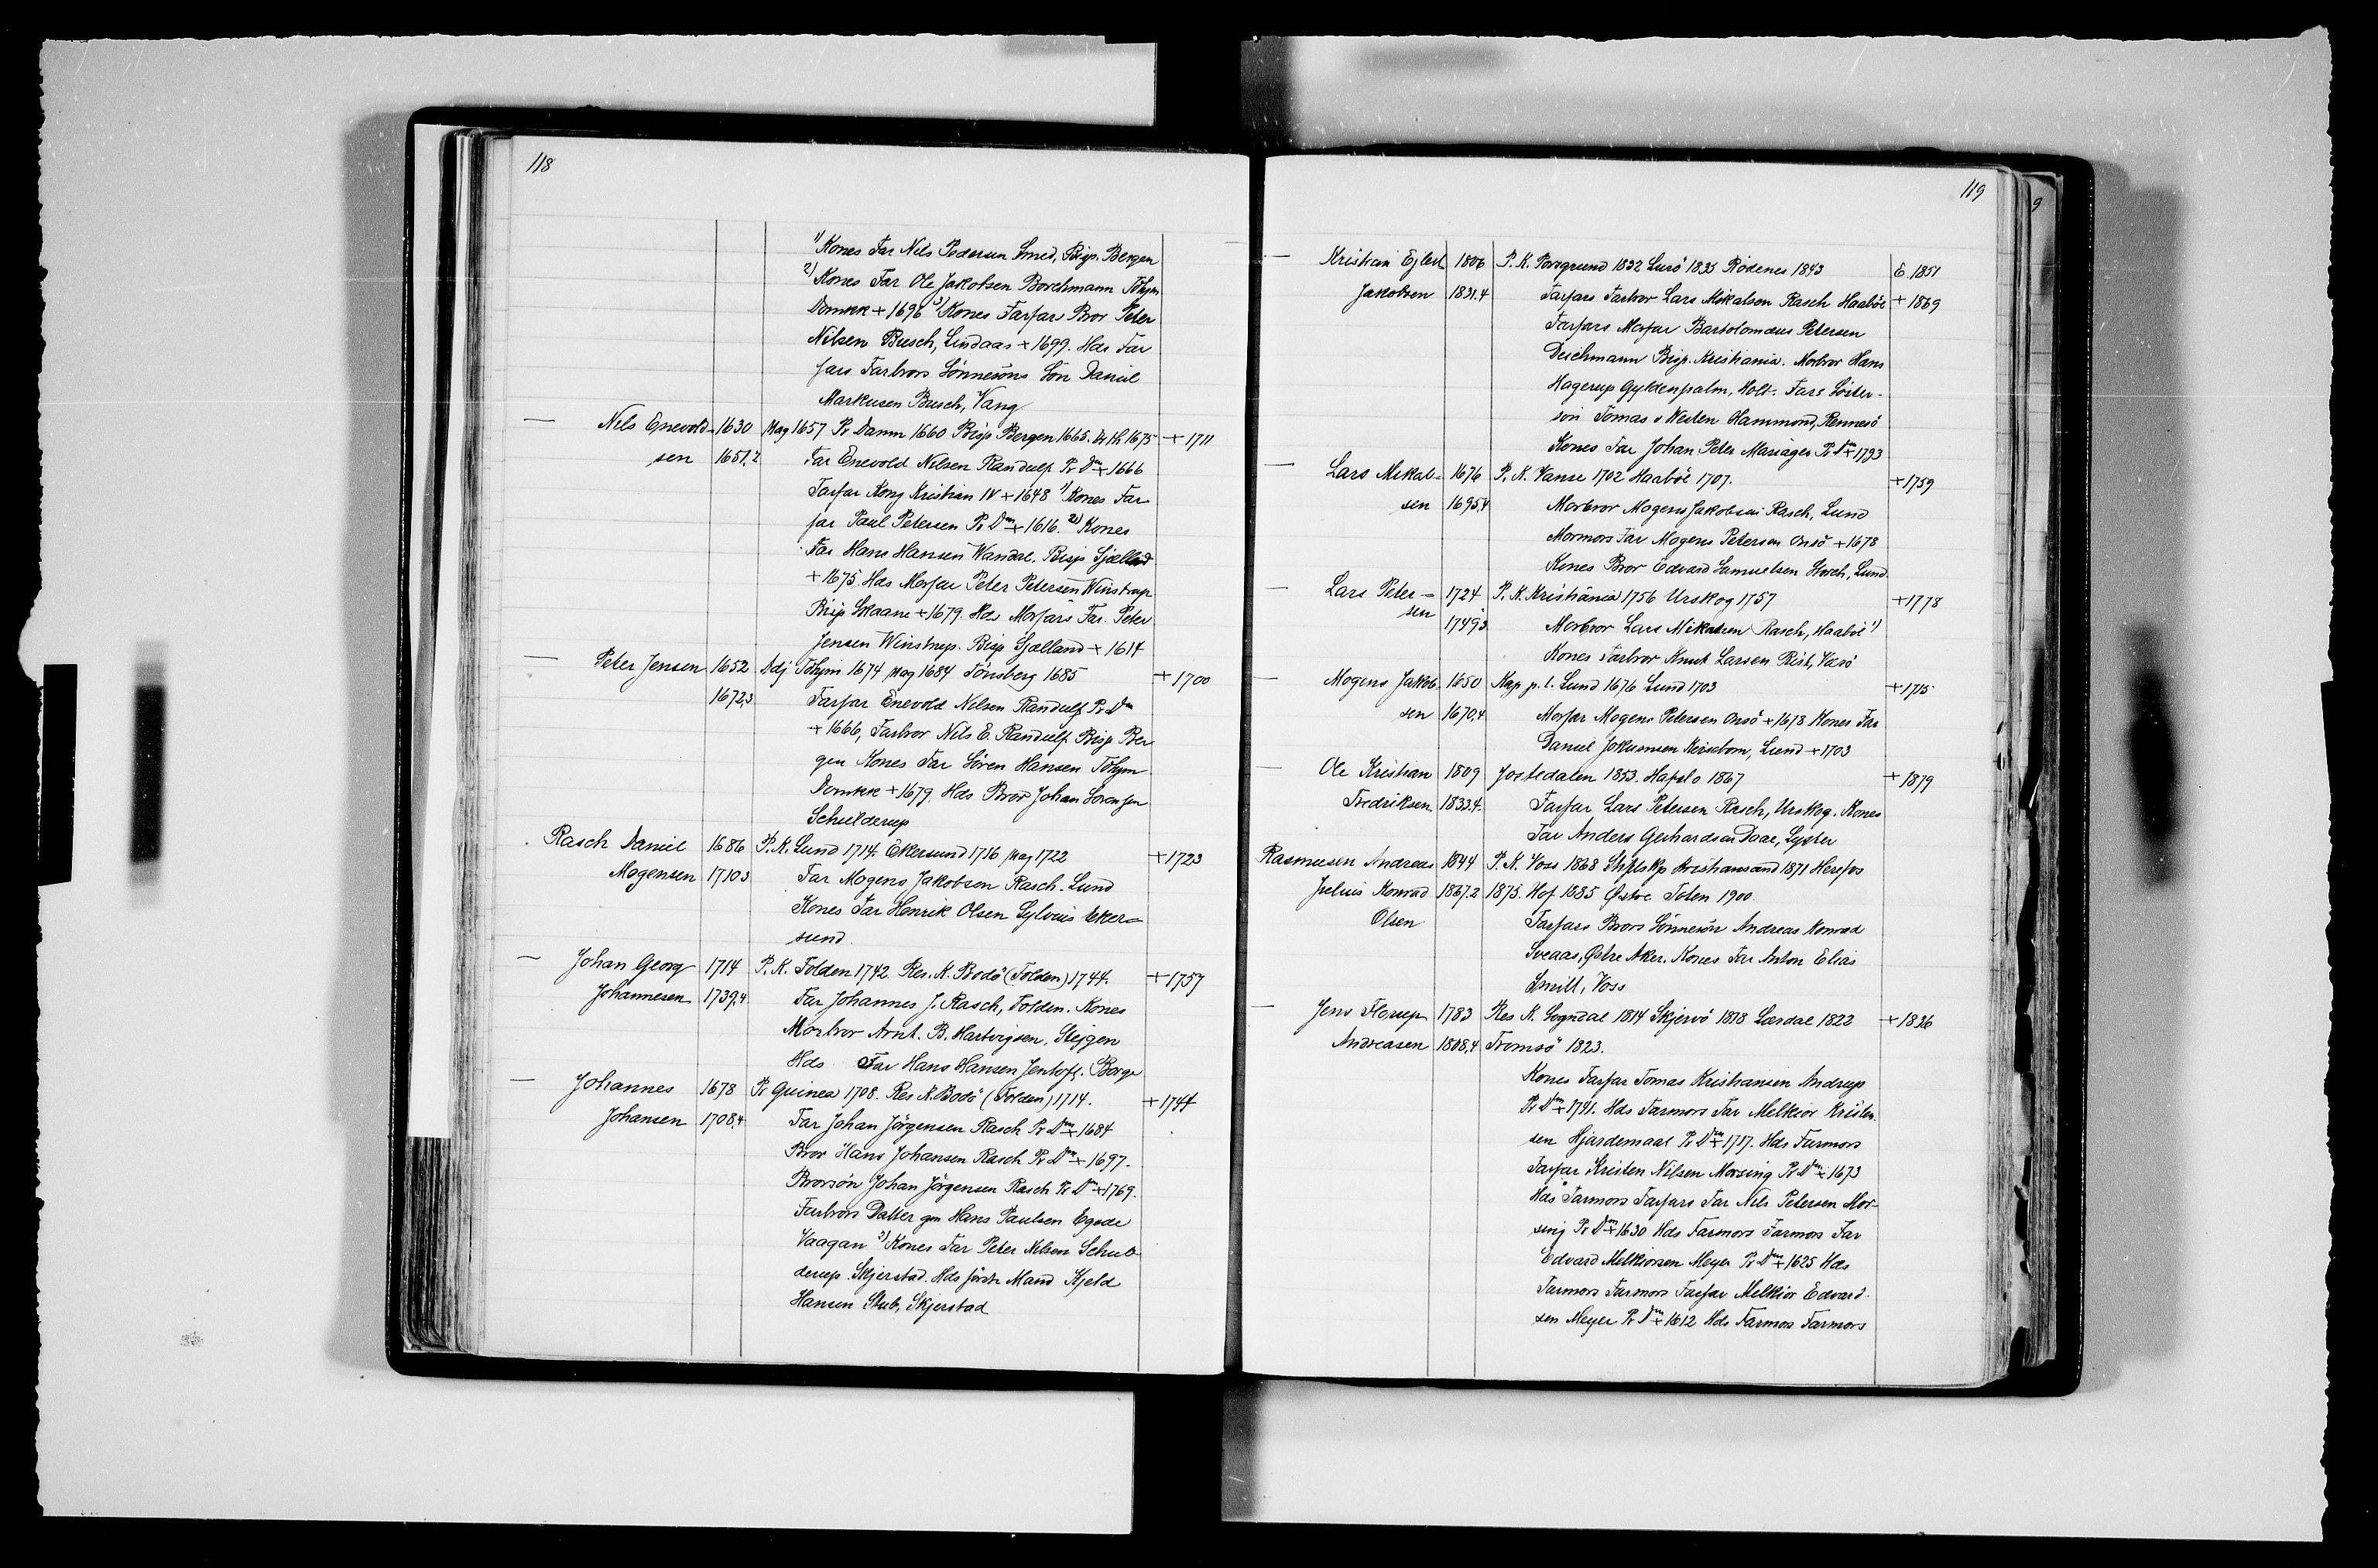 118
1) Kones Far Nils Pedersen Smed, Bisp. Bergen
2) Kones Far Ole Jakobsen Borchmann Tohjm
Domkk + 1696 3) Kones Farfars Bror Peter
Nilsen Busch, Lindaas + 1699. Hds Far
fars Farbrors Sönnesöns Sön Daniel
Markusen Busch, Vang
— Nils Enevold- 1630 Mag 1657 Pr Danm 1660 Bisp Bergen 1665. Dr th 1675 + 1711
sen 1651,2 Far Enevold Nilsen Randulf Pr Dm + 1666
Farfar Kong Kristian IV + 1648 1) Kones Far-
far Paul Petersen Pr Dm + 1616. 2) Kones
Far Hans Hansen Wandal. Bisp Sjælland
+ 1675. Hds Morfar Peter Petersen Winstrup
Bisp Skaane + 1679. Hds Morfars Far. Peter
Jensen Winstrup. Bisp Sjælland + 1614
— Peter Jensen 1652 Adj Tohjm 1674 Mag 1684 Tönsberg 1685 + 1700
1672,3 Farfar Enevold Nilsen Randulf Pr Dm
+ 1666, Farbror Nils E. Randulf Bisp Ber
gen Kones Far Sören Hansen Tohjm
Domkk + 1679. Hds Bror Johan Sörensen
Schulderup
Rasch Daniel 1686 P. K. Lund 1714. Ekersund 1716 Mag 1722 + 1723
Mogensen 1710,3 Far Mogens Jakobsen Rasch. Lund
Kones Far Henrik Olsen Sylvius Eker=
sund.
— Johan Georg 1714 P. K. Folden 1742. Res. K. Bodö (Folden) 1744. + 1757
Johannesen 1739,4 Far Johannes J. Rasch, Folden. Kones
Morbror Arnt. B. Hartvigsen, Stejgen
Hds Far Hans Hansen Jentoft. Borge
— Johannes 1678 Pr Guinea 1708. Res K. Bodö (Folden) 1714. + 1744
Johansen 1708,4 Far Johan Jörgensen Rasch Pr Dm + 1684
Bror Hans Johansen Rasch Pr Dm + 1697.
Brorsön Johan Jörgensen Rasch Pr Dm + 1769.
Farbrors Datter gm Hans Paulsen Egede
Vaagan 2) Kones Far Peter Nilsen Schul-
derup. Skjerstad. Hds förste Mand Kjeld
Hansen Stub, Skjerstad
119
9
— Kristian Ejlert 1806 P. K. Porsgrund 1832 Lurö 1835 Rödenes 1843 E. 1851
Jakobsen 1831.4 Farfars Farbror Lars Mikalsen Rasch Haaböl + 1869
Farfars Morfar Bartolomæus Petersen
Deichmann Bisp. Kristiania. Morbror Hans
Hagerup Gyldenpalm, Holt. Fars Söster-
sön Tomas v Westen Hammond, Rennesö
Kones Far Johan Peter Mariager Pr Dm + 1793
— Lars Mikal- 1676 P. K. Vanse 1702 Haaböl 1707. + 1759
sen 1695,4 Morbror Mogens Jakobsen Rasch, Lund
Mormors Far Mogens Petersen Onsö + 1678
Kones Bror Edvard Samuelsen Storch, Lund
— Lars Peter- 1724 P. K. Kristiania 1756 Urskog 1757 + 1778
sen 1749,3 Morbror Lars Mikalsen Rasch, Haaböl 1)
Kones Farbror Knut Larsen Rist, Værö
— Mogens Jakob- 1650 Kap p. l. Lund 1676 Lund 1703 + 1715
sen 1670,4 Morfar Mogens Petersen Onsö + 1678 Kones Far
Daniel Jokumsen Kirsebom, Lund + 1703
— Ole Kristian 1809 Jostedalen 1853. Hafslo 1867 + 1879
Fredriksen 1833.4 Farfar Lars Petersen Rasch, Urskog. Kones
Far Anders Gerhardsen Daae, Lyster
Rasmusen Andreas 1844 P. K. Voss 1868 Stiftskp Kristiansand 1871 Herefos
Julius Konrad 1867.2 1875. Hof 1885 Østre Toten 1900.
Olsen Farfars Brors Sönnesön Andreas Konrad
Sveaas, Østre Aker. Kones Far Anton Elias
Smitt, Voss
— Jens Florup 1783 Res K. Sogndal 1814 Skjervö 1818 Lærdal 1822 + 1826
Andreasen 1808,4 Tromsö 1823.
Kones Farfar Tomas Kristiansen Andrup
Pr Dm + 1741. Hds Farmors Far Melkior Kristen
sen Hjardemaal Pr Dm + 1717. Hds Farmors
Farfar Kristen Nilsen Morsing Pr Dm + 1673
Hds Farmors Farfars Far Nils Petersen Mor-
sing Pr Dm + 1630 Hds Farmors Farmors Far
Edvard Melkiorsen Meyer Pr Dm + 1625 Hds
Farmors Farmors Farfar Melkior Edvard-
sen Meyer Pr Dm + 1612 Hds Farmors Farmors